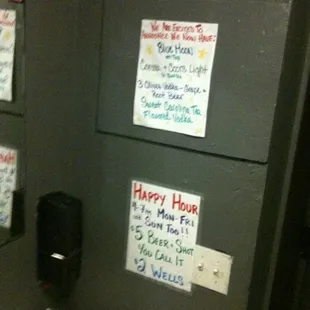 We Are Excited To
Announce We Now Have:
Blue Moon
on Tap
Corona + Coors Light
in Bottles
3 Olives Vodka - Grape +
Root Beer
Sweet Carolina Tea
Flavored Vodka
Happy Hour
4-7pm Mon-Fri
and Sun Too!!
$5 Beer + Shot
You Call It
$2 Wells